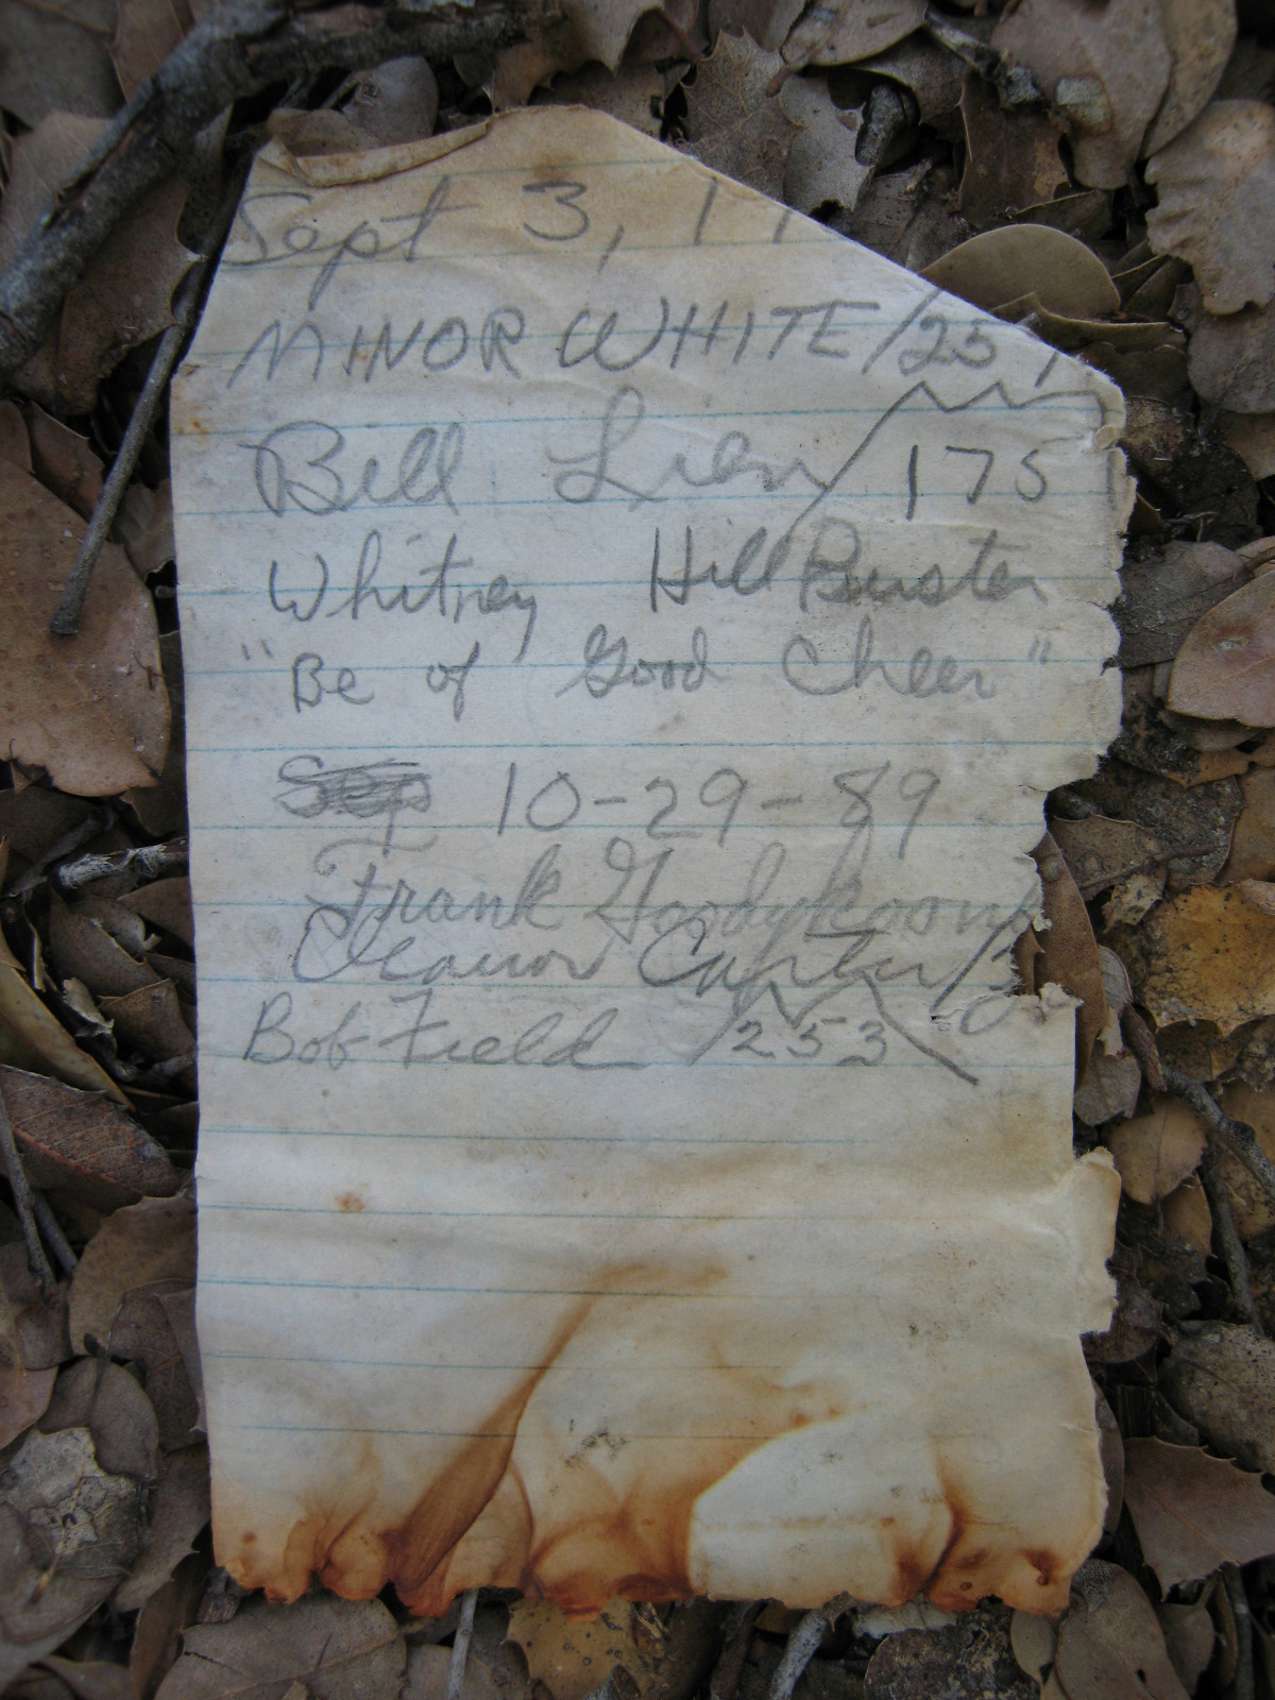 Sept 3, 1
MINOR WHITE/25
Bill Lien/175
Whitney Hill Buster
"Be of Good Cheer"
Sep 10-29-89
Frank Goodykoontz
Eleanor Carter/3
Bob Field /253